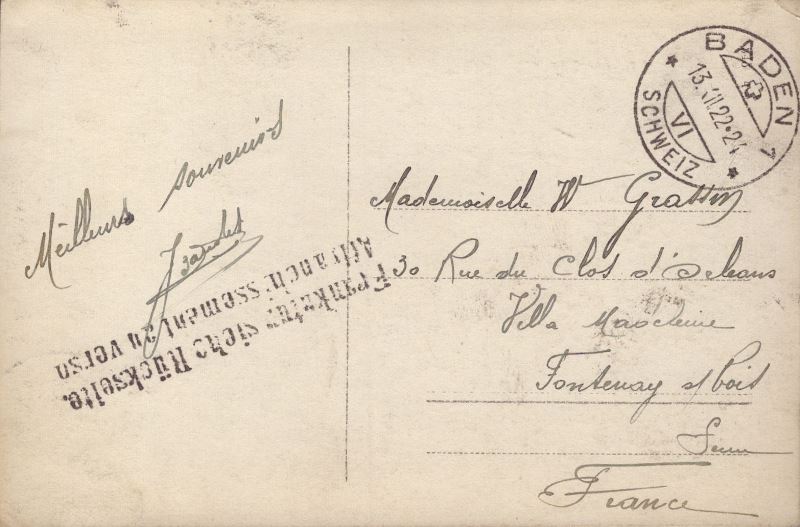 Meilleurs souvenirs
Frankatur siehe Rückseite.
Affranchissement au verso
BADEN 1
13.XII.22-24
VI
SCHWEIZ
Mademoiselle W Grassin
30 Rue du Clos d'Orleans
Villa
Fontenay s/bois
Seine
France